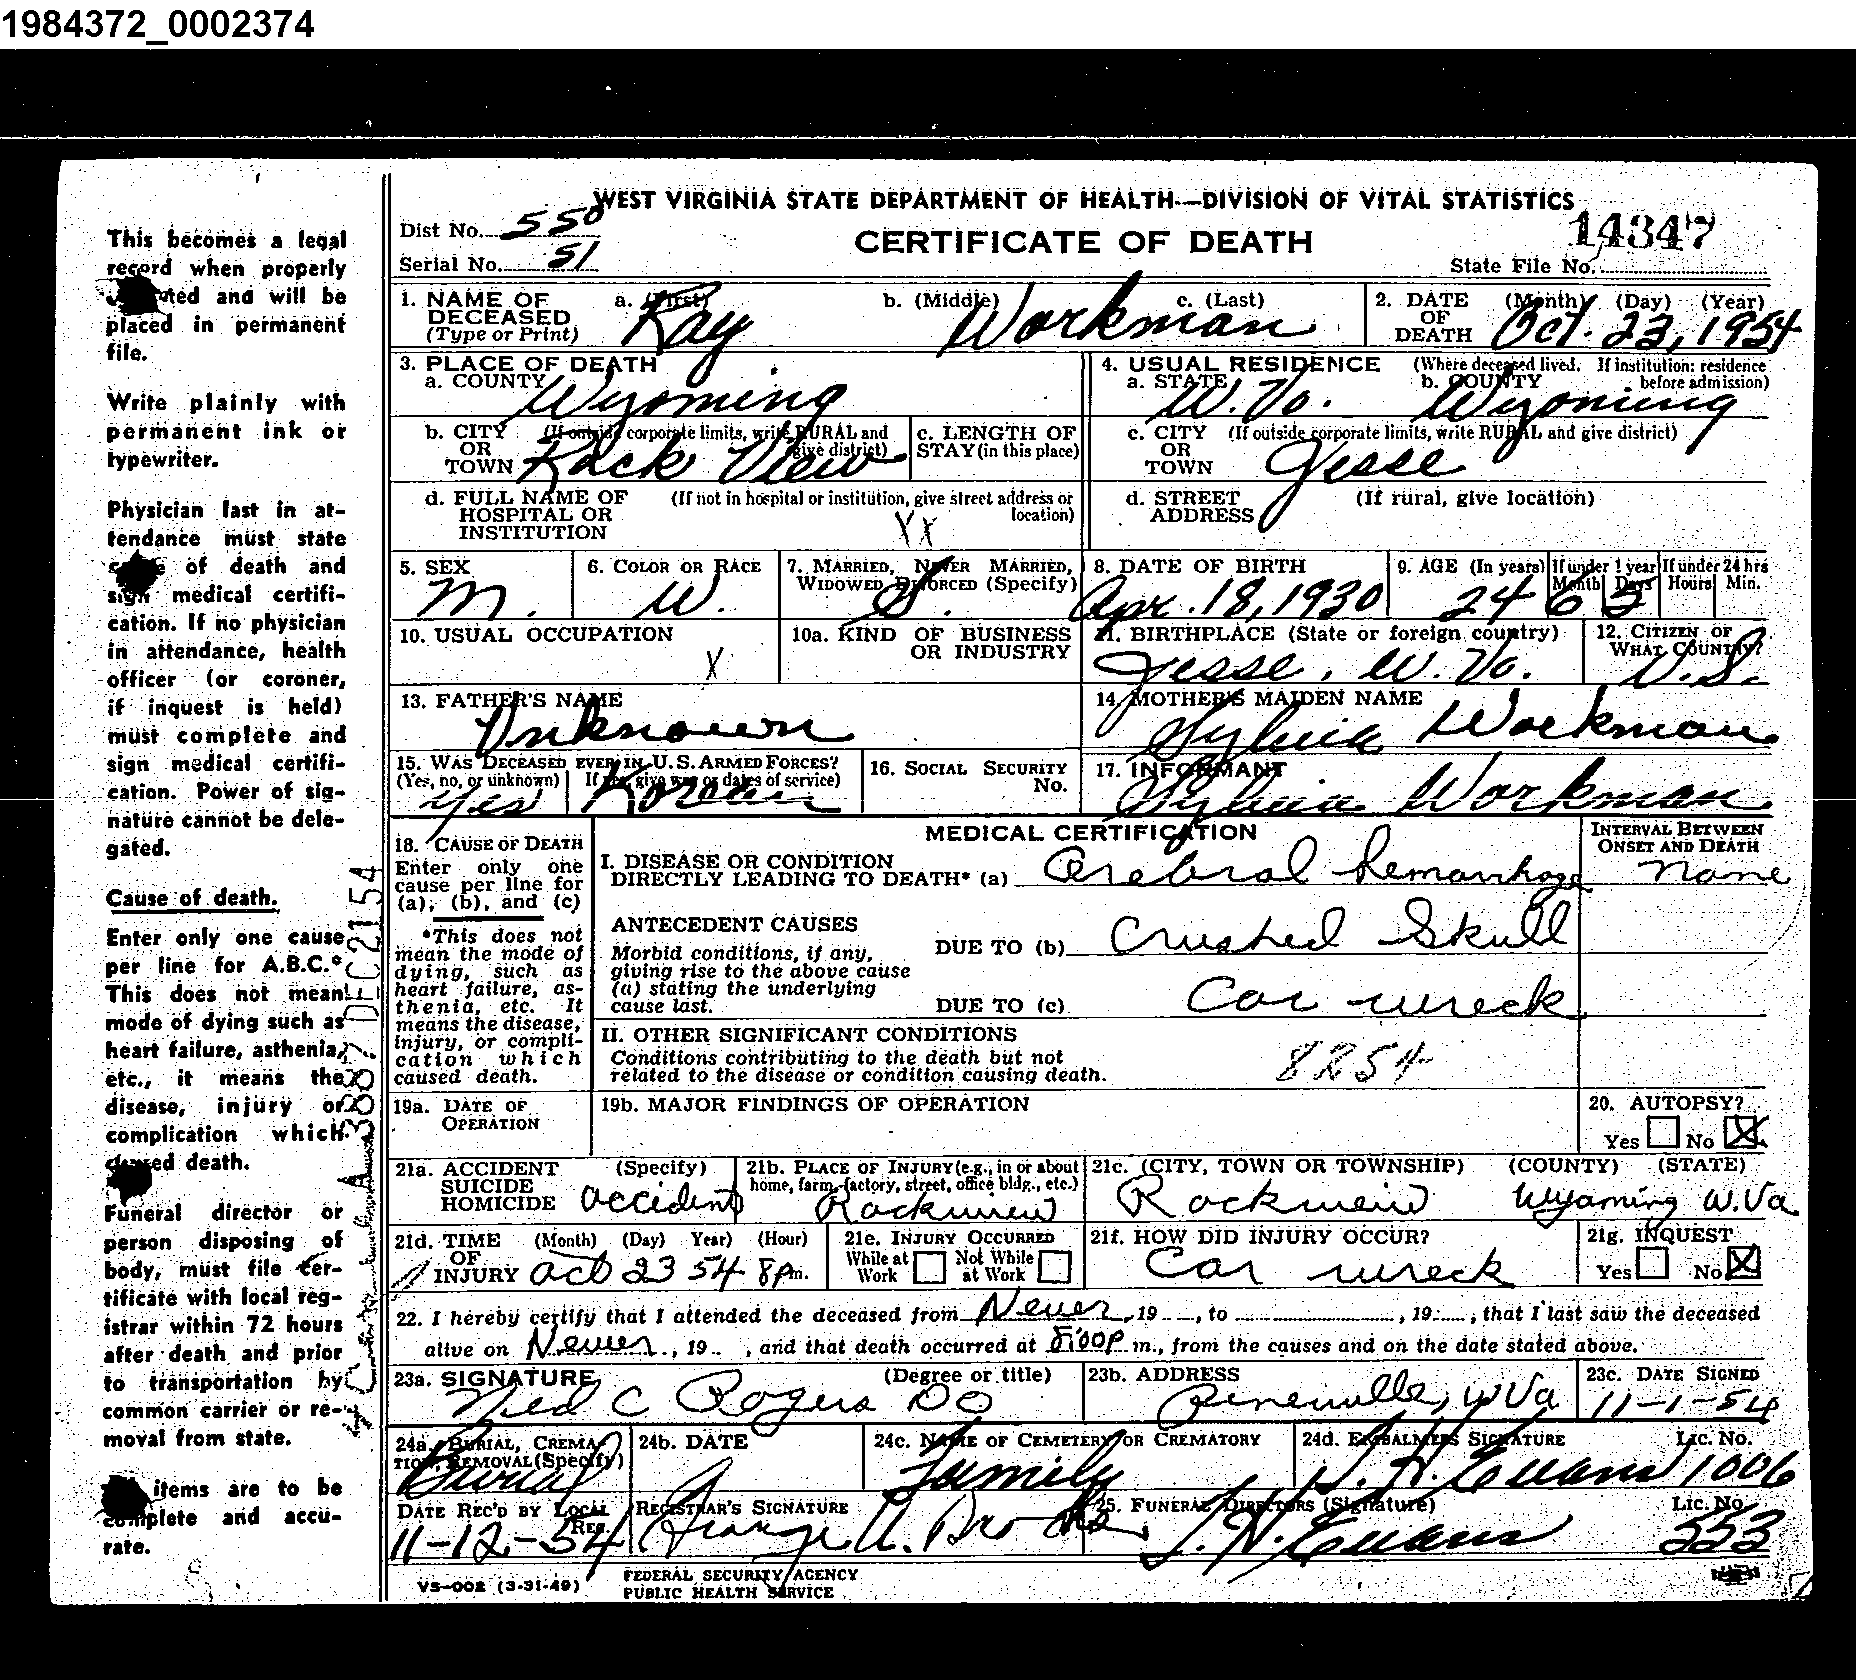 1984372_0002374
WEST VIRGINIA STATE DEPARTMENT OF HEALTH—DIVISION OF VITAL STATISTICS
Dist No. 550
Serial No. 51
CERTIFICATE OF DEATH
14347
State File No.
1. NAME OF DECEASED (Type or Print) a. (First) Ray b. (Middle) c. (Last) Workman
2. DATE OF DEATH (Month) (Day) (Year) Oct. 23, 1954
3. PLACE OF DEATH
a. COUNTY Wyoming
4. USUAL RESIDENCE (Where deceased lived. If institution: residence before admission)
a. STATE W. Va. b. COUNTY Wyoming
b. CITY OR TOWN (If outside corporate limits, write RURAL and give district) Rock View
c. LENGTH OF STAY (in this place)
c. CITY OR TOWN (If outside corporate limits, write RURAL and give district) Jesse
d. FULL NAME OF HOSPITAL OR INSTITUTION (If not in hospital or institution, give street address or location) XX
d. STREET ADDRESS (If rural, give location)
5. SEX M.
6. COLOR OR RACE W.
7. MARRIED, NEVER MARRIED, WIDOWED, DIVORCED (Specify) S.
8. DATE OF BIRTH Apr. 18, 1930
9. AGE (In years) 24 If under 1 year Month 6 Days 5 If under 24 hrs Hours Min.
10. USUAL OCCUPATION X
10a. KIND OF BUSINESS OR INDUSTRY
11. BIRTHPLACE (State or foreign country) Jesse, W. Va.
12. CITIZEN OF WHAT COUNTRY? U.S.
13. FATHER'S NAME Unknown
14. MOTHER'S MAIDEN NAME Sylvia Workman
15. WAS DECEASED EVER IN U.S. ARMED FORCES? (Yes, no, or unknown) Yes If yes, give war or dates of service) Korean
16. SOCIAL SECURITY No.
17. INFORMANT Sylvia Workman
MEDICAL CERTIFICATION
INTERVAL BETWEEN ONSET AND DEATH
18. CAUSE OF DEATH
Enter only one cause per line for (a), (b), and (c)
*This does not mean the mode of dying, such as heart failure, asthenia, etc. It means the disease, injury, or complication which caused death.
I. DISEASE OR CONDITION DIRECTLY LEADING TO DEATH* (a) Cerebral hemorrhage none
ANTECEDENT CAUSES
Morbid conditions, if any, giving rise to the above cause (a) stating the underlying cause last.
DUE TO (b) Crushed Skull
DUE TO (c) Car wreck
II. OTHER SIGNIFICANT CONDITIONS
Conditions contributing to the death but not related to the disease or condition causing death.
8254
19a. DATE OF OPERATION
19b. MAJOR FINDINGS OF OPERATION
20. AUTOPSY? Yes No X
21a. ACCIDENT SUICIDE HOMICIDE (Specify) accident
21b. PLACE OF INJURY (e.g., in or about home, farm, factory, street, office bldg., etc.) Rockview
21c. (CITY, TOWN OR TOWNSHIP) (COUNTY) (STATE) Rockview Wyoming W.Va
21d. TIME OF INJURY (Month) (Day) Year) (Hour) Oct 23 54 8pm.
21e. INJURY OCCURRED While at Work Not While at Work
21f. HOW DID INJURY OCCUR? Car wreck
21g. INQUEST Yes No X
22. I hereby certify that I attended the deceased from Never, 19 , to , 19 , that I last saw the deceased
alive on Never, 19 , and that death occurred at 8:00P m., from the causes and on the date stated above.
23a. SIGNATURE (Degree or title) Ned C Rogers DO
23b. ADDRESS Pineville, W Va
23c. DATE SIGNED 11-1-54
24a. BURIAL, CREMATION, REMOVAL (Specify) Burial
24b. DATE
24c. NAME OF CEMETERY OR CREMATORY Family
24d. EMBALMERS SIGNATURE Lic. No. Evans 1006
DATE REC'D BY LOCAL REG. 11-12-54
REGISTRAR'S SIGNATURE George A. Brooks
25. FUNERAL DIRECTORS (Signature) Lic. No. Evans 553
VS-002 (3-31-49)
FEDERAL SECURITY AGENCY
PUBLIC HEALTH SERVICE
This becomes a legal
record when properly
ted and will be
placed in permanent
file.
Write plainly with
permanent ink or
typewriter.
Physician last in at-
tendance must state
of death and
sign medical certifi-
cation. If no physician
in attendance, health
officer (or coroner,
if inquest is held)
must complete and
sign medical certifi-
cation. Power of sig-
nature cannot be dele-
gated.
Cause of death.
Enter only one cause
per line for A.B.C.*
This does not mean
mode of dying such as
heart failure, asthenia,
etc., it means the
disease, injury or
complication which
death.
Funeral director or
person disposing of
body, must file cer-
tificate with local reg-
istrar within 72 hours
after death and prior
to transportation by
common carrier or re-
moval from state.
items are to be
complete and accu-
rate.
DEC 21 54